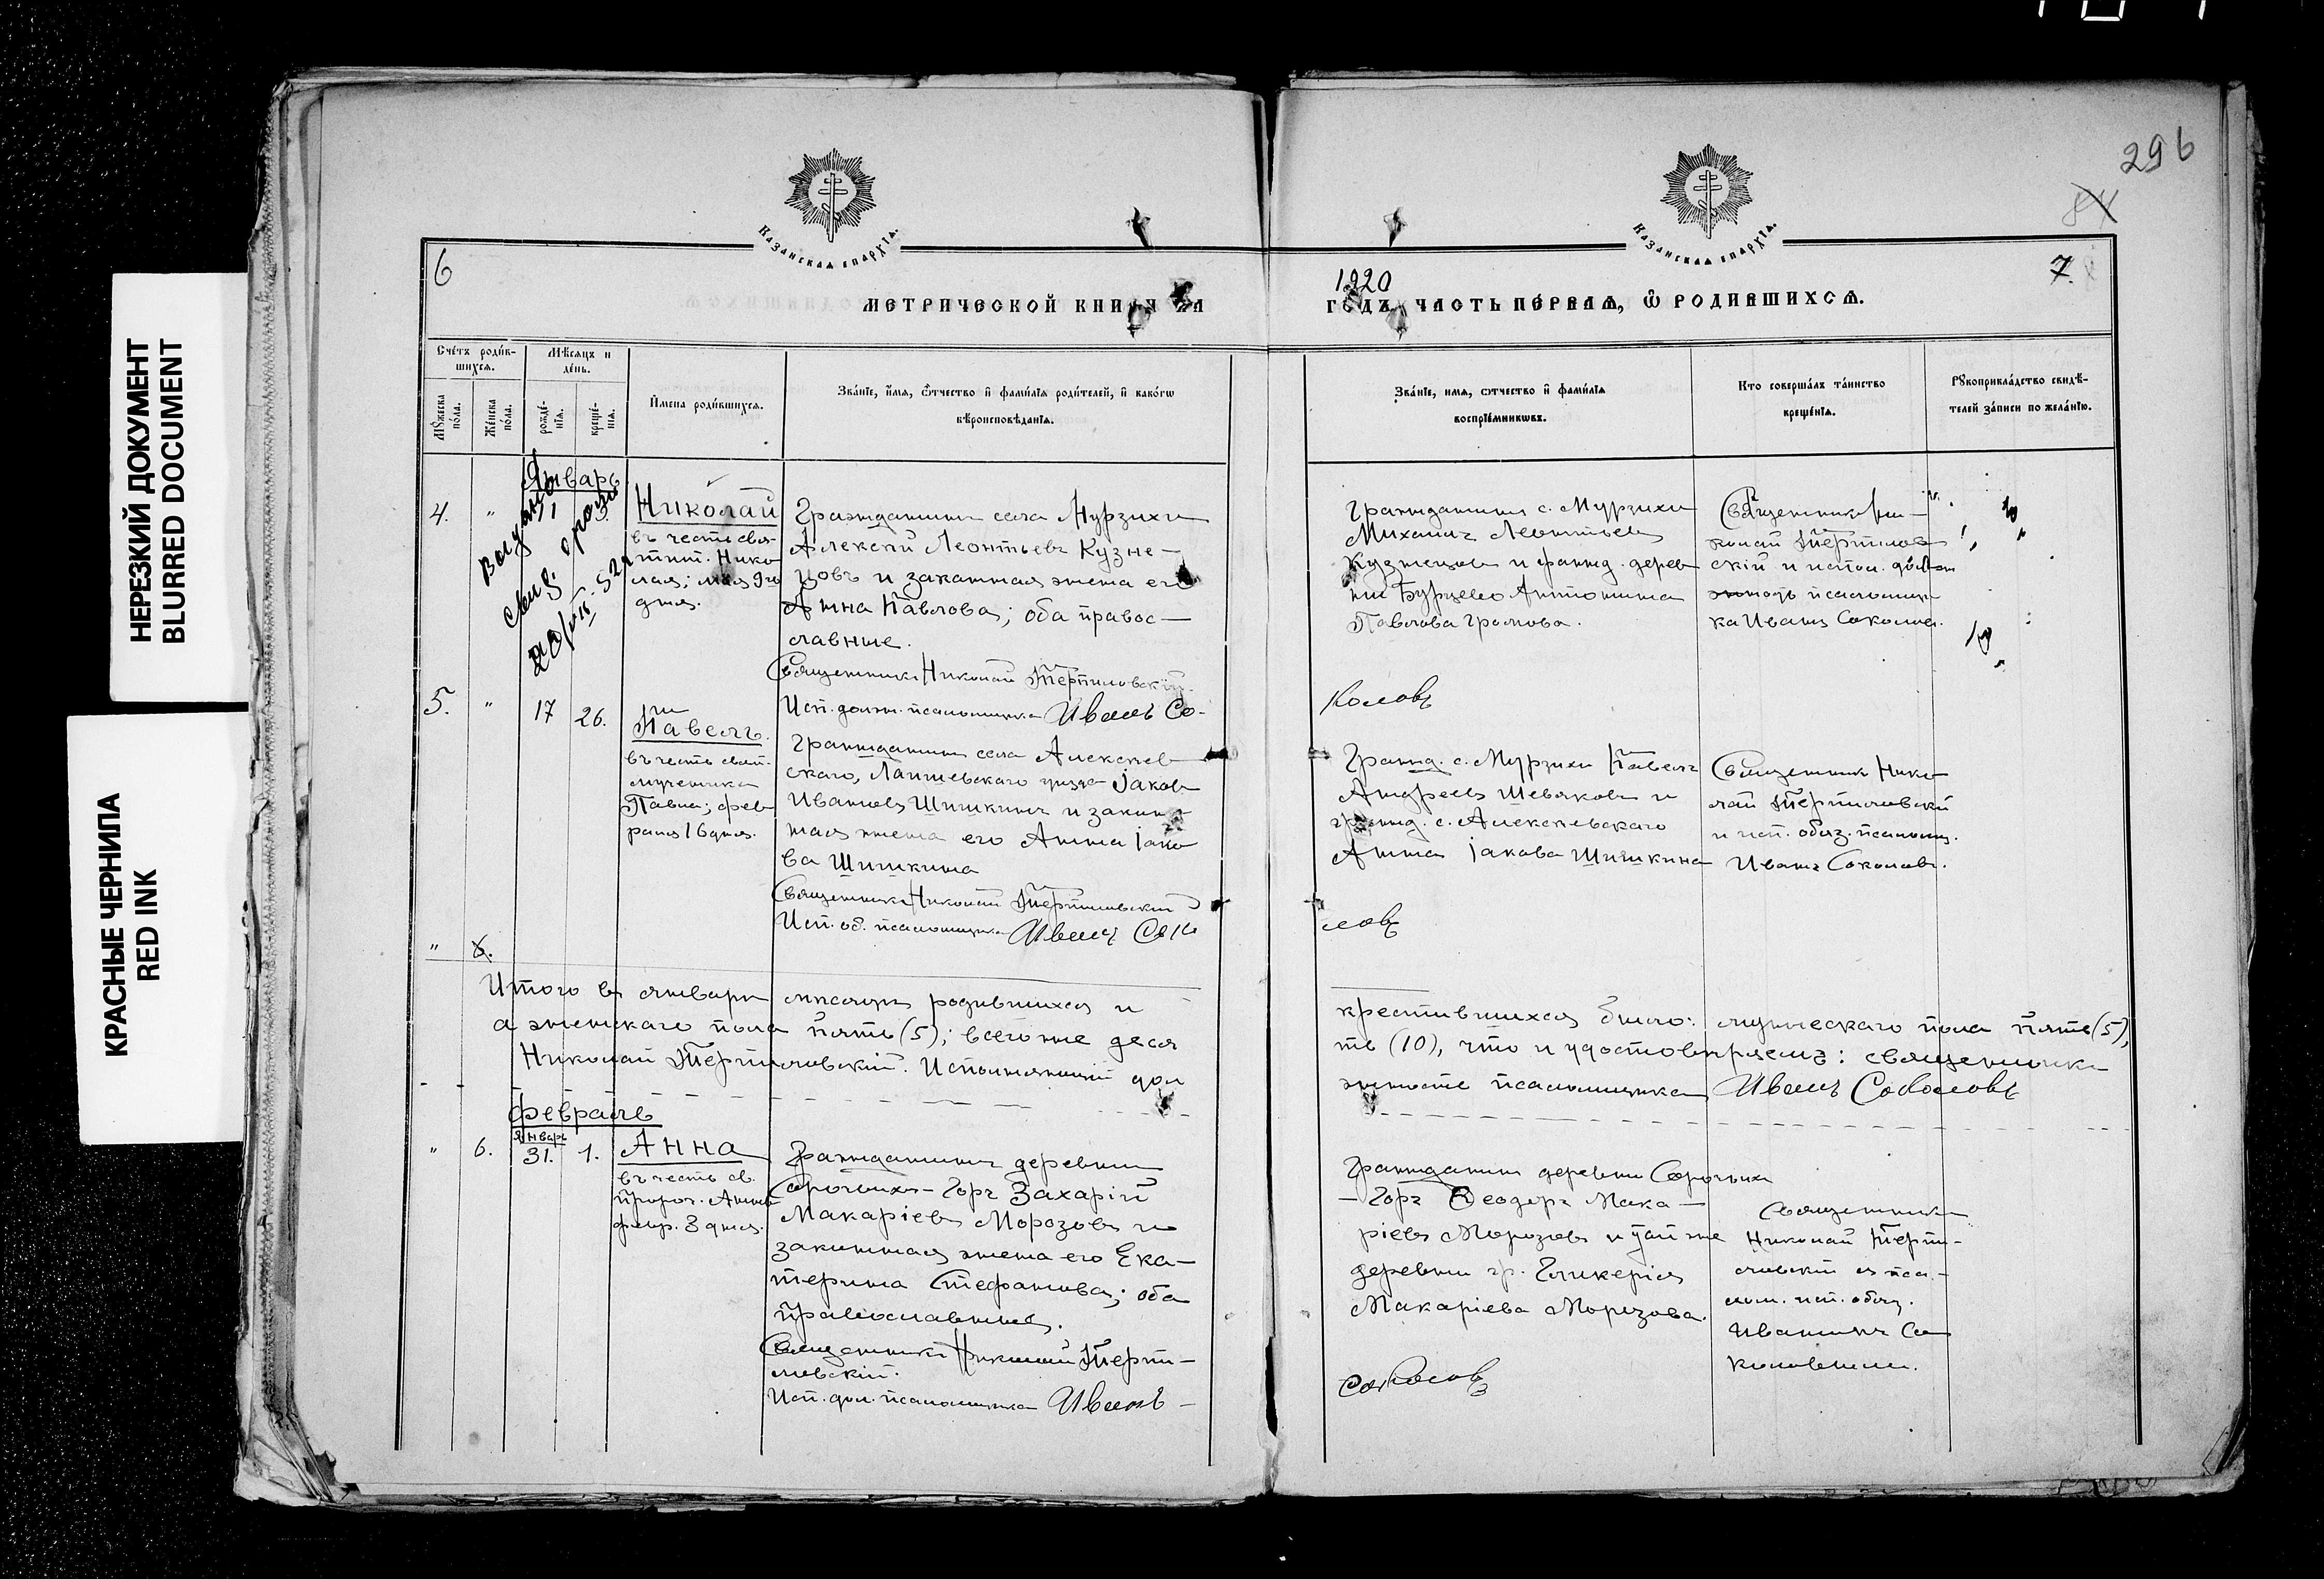 НЕРЕЗКИЙ ДОКУМЕНТ
BLURRED DOCUMENT
КРАСНЫЕ ЧЕРНИЛА
RED INK
296
84
КАЗАНСКАЯ ЕПАРХІЯ.
КАЗАНСКАЯ ЕПАРХІЯ.
6
МЕТРИЧЕСКОЙ КНИГИ ЗА
1920
ГОДЪ, ЧАСТЬ ПЕРВАЯ, Ѡ РОДИВШИХСЯ.
7.
Счетъ родив-
шихся.
Мѣсяцъ и
день.
Мужеска
пола.
Женска
пола.
рожде-
нія.
креще-
нія.
Имена родившихся.
Званіе, имя, отчество и фамилія родителей, и какогѡ
вѣроисповѣданія.
Званіе, имя, отчество и фамилія
воспріемникѡвъ.
Кто совершалъ таинство
крещенія.
Рукоприкладство свидѣ-
телей записи по желанію.
Январь
4.
"
Николай
въ честь свя-
тит. Нико-
лая; мая 9го
дня.
Гражданинъ села Мурзихи
Алексѣй Леонтьевъ Кузне-
цовъ и законная жена его
Анна Павлова; оба правос-
лавные.
Священникъ Николай Терпиловскій.
Исп. должн. псаломщика Иванъ Со-
Гражданинъ с. Мурзихи
Михаилъ Леонтьевъ
Кузнецовъ и гражд. дерев
ни Бурцево Антонина
Павлова Громова.
Священникъ Ни-
колай Терпилов
скій и испол. должн
ность псаломщи
ка Иванъ Соколовъ.
коловъ
5.
"
17
26.
Павелъ.
въ честь свят.
мученика
Павла; фев
раля 16 дня.
Гражданинъ села Алексѣев
скаго, Лаишевскаго уѣзда Іаковъ
Ивановъ Шишкинъ и закон
ная жена его Анна Іако
ва Шишкина
Священникъ Николай Терпиловскій
Исп. об. псаломщика Иванъ Соко
Гражд. с. Мурзихи Павелъ
Андреевъ Шевяковъ и
гражд. с. Алексѣевскаго
Анна Іакова Шишкина
Священникъ Нико
лай Терпиловскій
и исп. обяз. псаломщ.
Иванъ Соколовъ.
ловъ
"
6.
Итого въ январѣ мѣсяцѣ родившихся и
крестившихся было: мужескаго пола пять (5),
а женскаго пола пять (5); всего же деся
ть (10), что и удостовѣряемъ: священникъ
Николай Терпиловскій. Исполняющій дол
жность псаломщика Иванъ Соколовъ
Февраль
"
6.
Январь
31.
1.
Анна
въ честь св.
пророч. Анны
февр. 3 дня.
Гражданинъ деревни
Сорочьихъ-Горъ Захарій
Макаріевъ Морозовъ и
законная жена его Ека-
терина Стефанова; оба
православные.
Священникъ Николай Терпи-
ловскій.
Исп. дол. псаломщика Иванъ -
Гражданинъ деревни Сорочьихъ
- Горъ Ѳеодоръ Мака-
ріевъ Морозовъ и той же
деревни гр. Гликерія
Макаріева Морозова.
Священникъ
Николай Терпи-
ловскій съ пса-
лом. исп. обяз.
Иваномъ Со
коловымъ.
Соколовъ